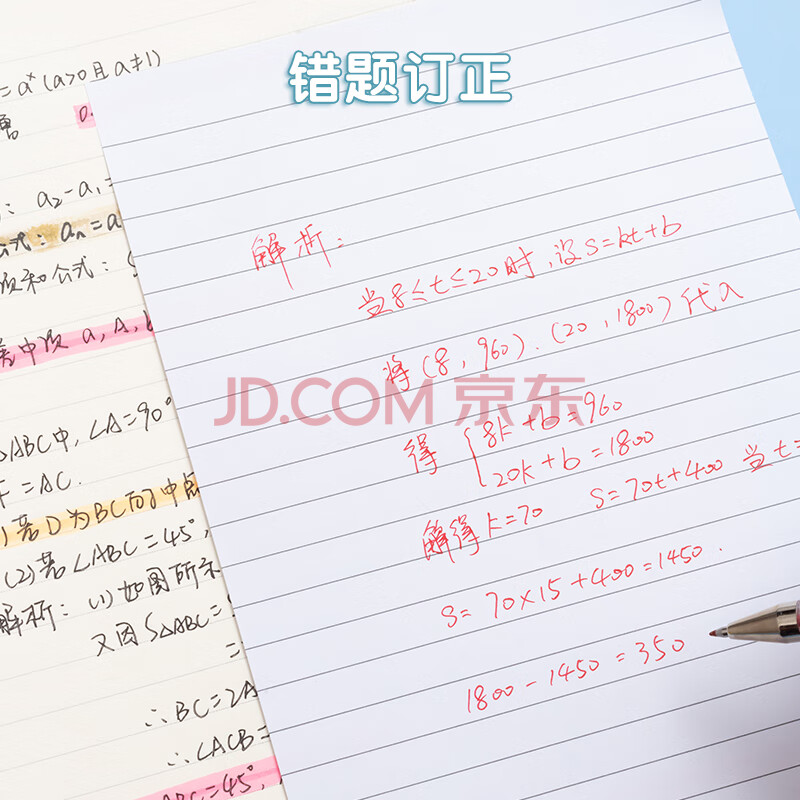 错题订正
=aˣ(a>0且a≠1)
: a₂-a₁=
公式: aₙ=a
项和公式:
等中项 a, A, b
△ABC中,∠A=90°
F=AC.
)若D为BC的中点
(2)若∠ABC=45°,
解析: (1)如图所示
又因S△ABC=
=
∴BC=2A
∴∠ACB=
ABC=45°,
解析:
当8≤t≤20时,设S=kt+b
将(8,960).(20,1800)代入
得 {8k+b=960
20k+b=1800
解得k=70 S=70t+400 当t=
S=70×15+400=1450.
1800-1450=350
JD.COM 京东